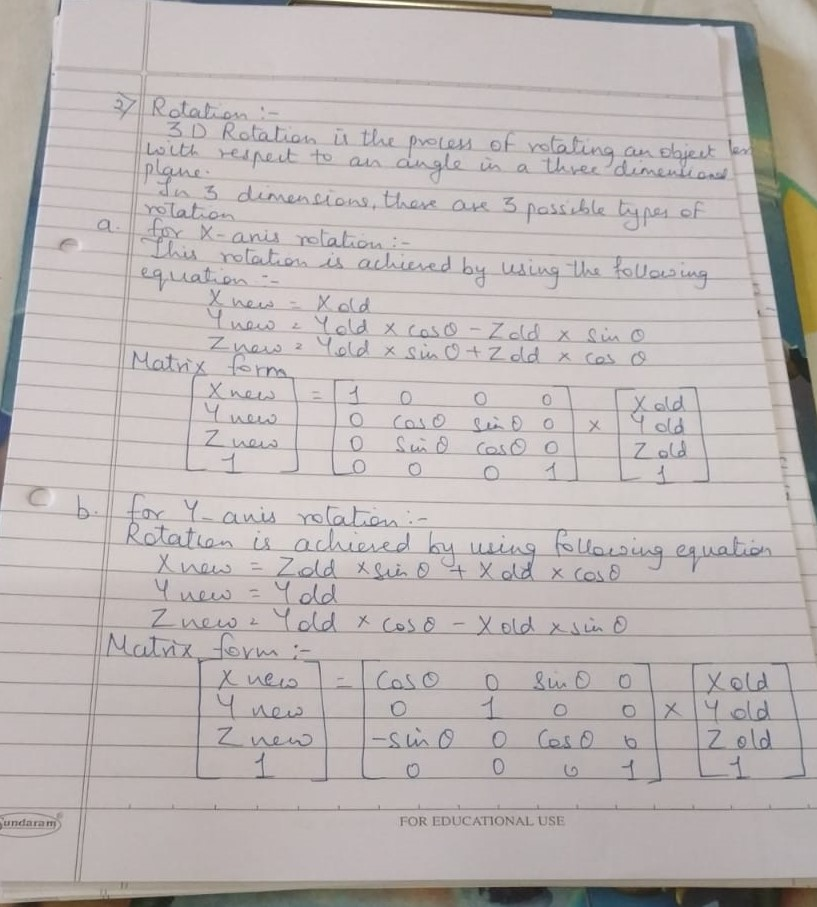 2) Rotation :-
3D Rotation is the process of rotating an object
with respect to an angle in a three dimentional
plane.
In 3 dimensions, there are 3 possible types of
rotation
a. for X-anis rotation :-
This rotation is achieved by using the following
equation :-
X new = X old
Y new = Y old × cos θ - Z old × sin θ
Z new = Y old × sin θ + Z old × cos θ
Matrix form
X new = 1 0 0 0 X old
Y new 0 cos θ sin θ 0 × Y old
Z new 0 sin θ cos θ 0 Z old
1 0 0 0 1 1
b. for Y-anis rotation :-
Rotation is achieved by using following equation
X new = Z old × sin θ + X old × cos θ
Y new = Y old
Z new = Y old × cos θ - X old × sin θ
Matrix form :-
X new = cos θ 0 sin θ 0 X old
Y new 0 1 0 0 × Y old
Z new -sin θ 0 cos θ 0 Z old
1 0 0 0 1 1
undaram
FOR EDUCATIONAL USE